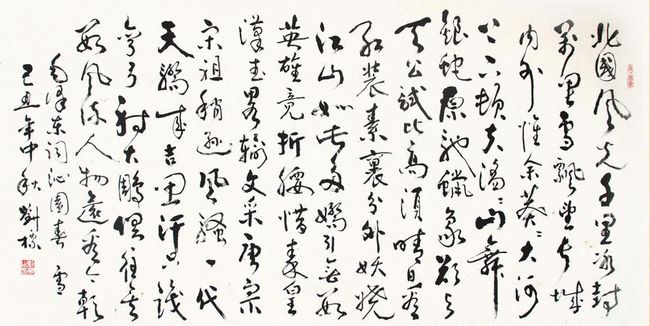 北國風光千里冰封
萬里雪飄望長城
内外惟余莽莽大河
上下頓失滔滔山舞
銀蛇原馳蠟象欲与
天公試比高須晴日看
红装素裹分外妖娆
江山如此多嬌引無数
英雄竞折腰惜秦皇
漢武略输文采唐宗
宋祖稍逊風骚一代
天驕成吉思汗只識
弯弓射大鵰俱往矣
数風流人物還看今朝
毛澤东词沁園春 雪
己丑年中秋 劉